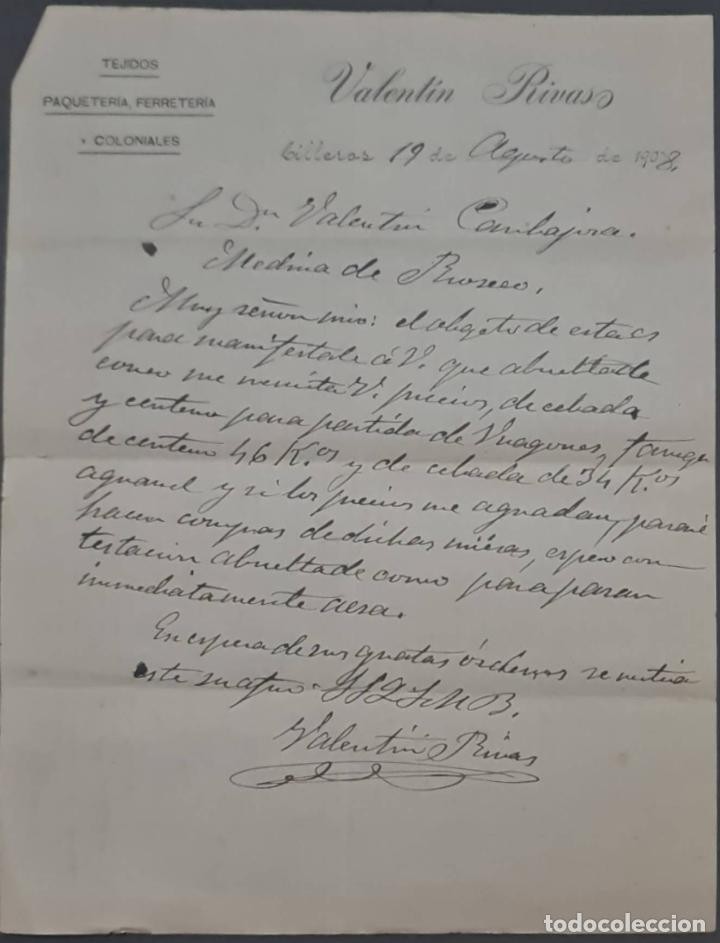 TEJIDOS
PAQUETERÍA, FERRETERÍA
Y COLONIALES
Valentín Rivas
Cilleros 19 de Agosto de 1908.
Sr Dn Valentin
Medina de Rioseco.
Muy señor mio: el obgeto de esta es
para manifestale á V. que abuelta de
correo me remita V. precios, de cebada
y centeno para partida de Vuagones, fanega
de centeno 46 K.os y de cebada de 34 K.os
y si los precios me agradan, pasaré
hacer compras de dichas espero con-
testacion abuelta de correo para pasar
immediatamente aesa.
En espera de sus gratas órdenes se
este su afmo S S Q S M B.
Valentin Rivas
todocoleccion